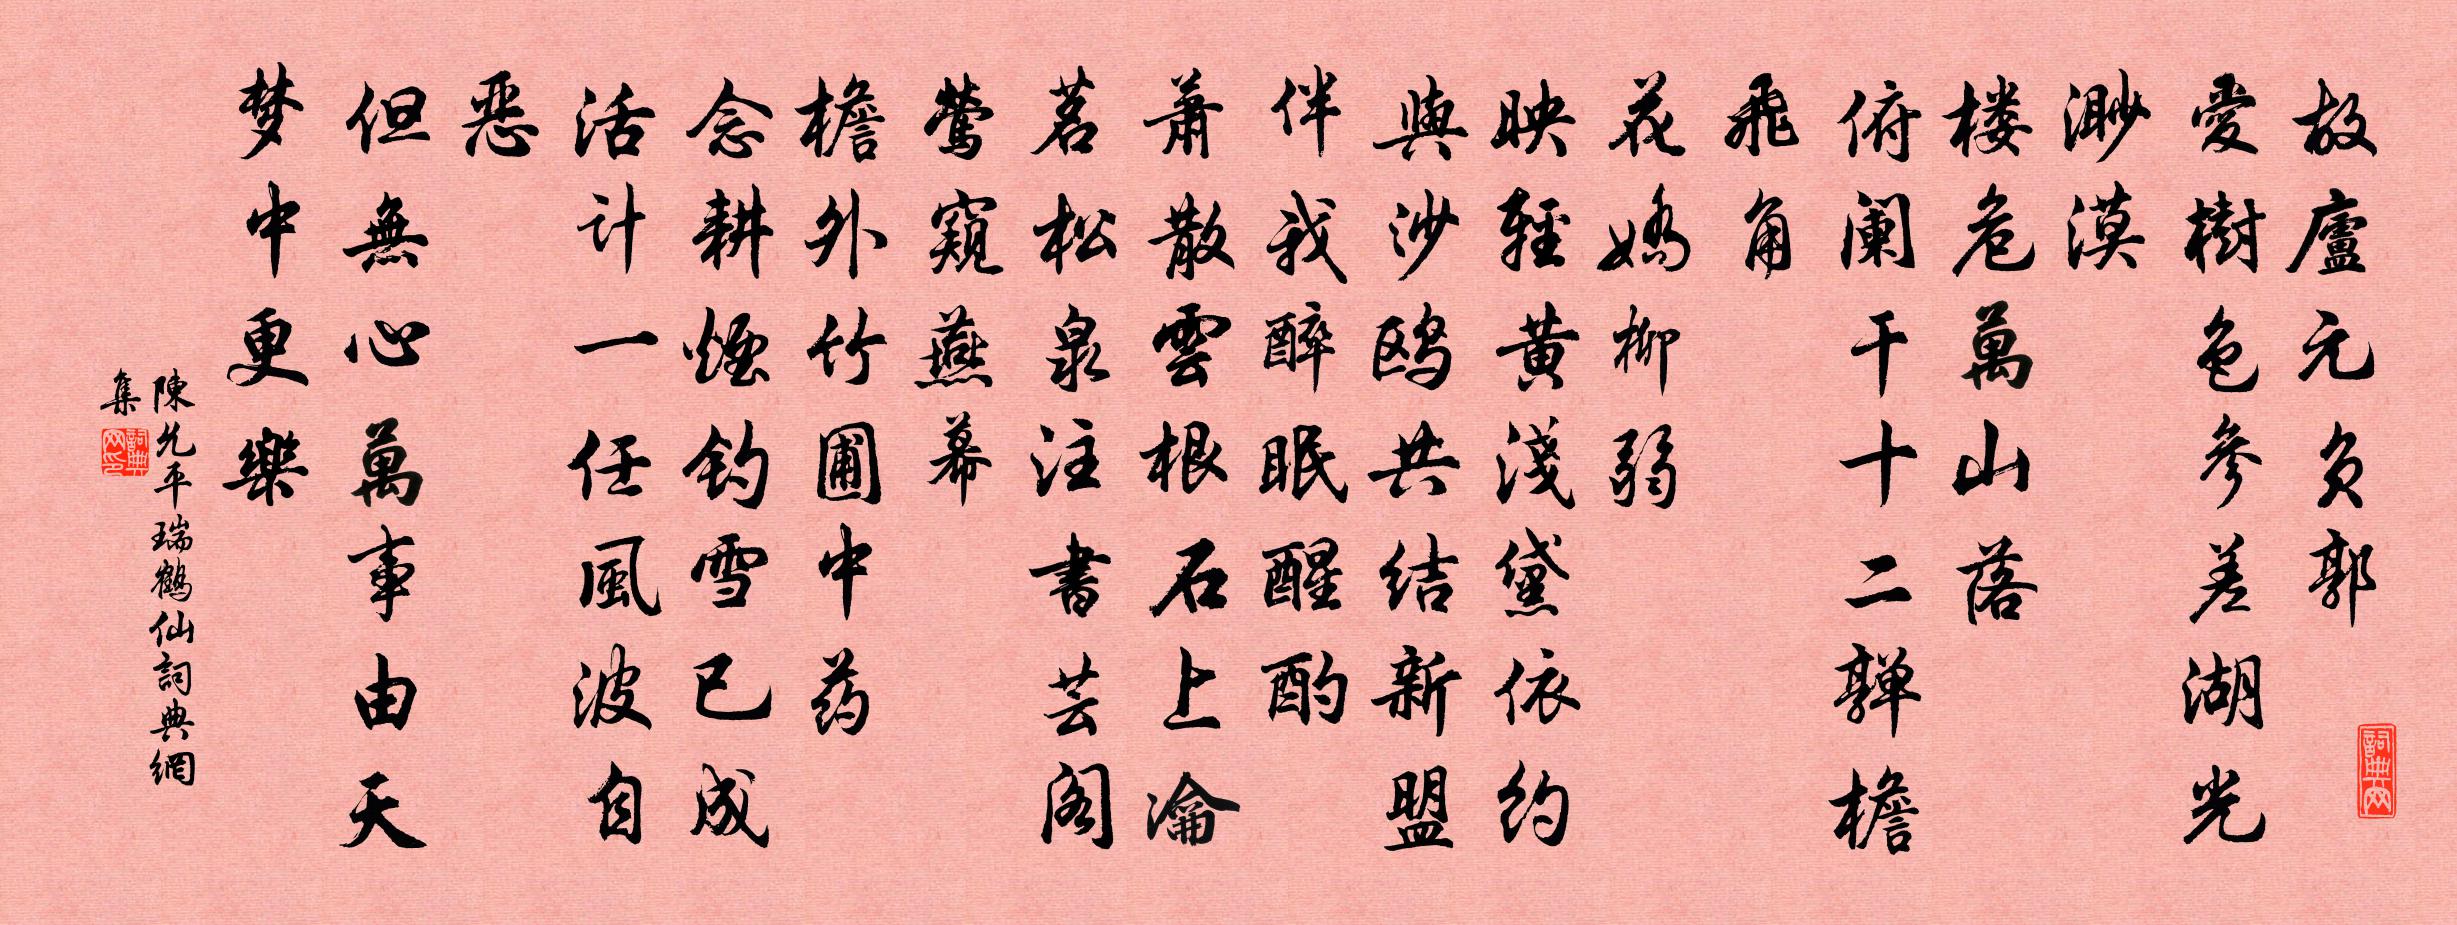 故廬元负郭
愛樹色參差湖光
渺漠
楼危萬山落
俯阑干十二亸檐
飛角
花嬌柳弱
映輕黄淺黛依约
與沙鸥共结新盟
伴我醉眠醒酌
萧散雲根石上瀹
茗松泉注書芸阁
莺窺燕幕
檐外竹圃中药
念耕煙钓雪已成
活计一任風波自
恶
但無心萬事由天
梦中更樂
陳允平瑞鶴仙詞典網
集
詞典网
詞典网印